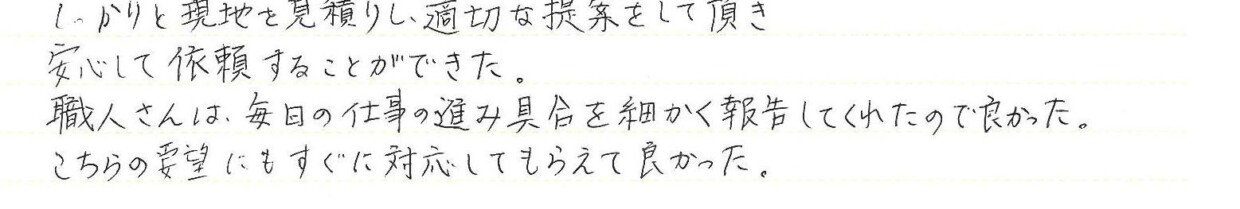 しっかりと現地を見積りし、適切な提案をして頂き
安心して依頼することができた。
職人さんは、毎日の仕事の進み具合を細かく報告してくれたので良かった。
こちらの要望にもすぐに対応してもらえて良かった。